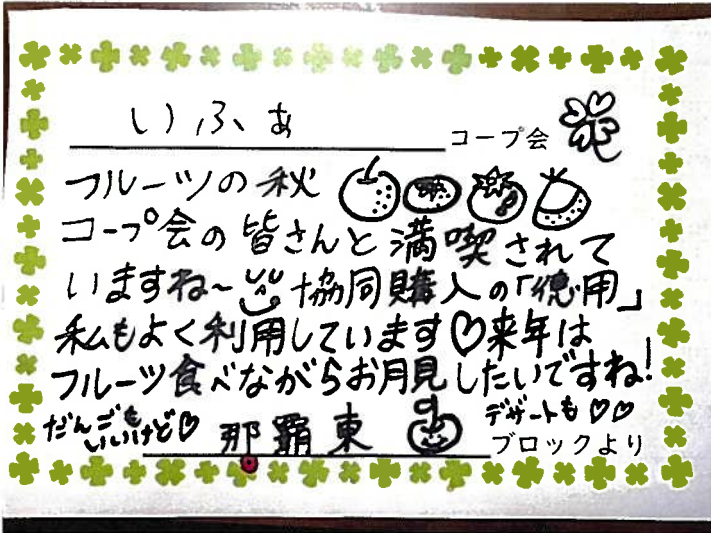 いふぁ コープ会
フルーツの秋
コープ会の皆さんと満喫されて
いますね~ 協同購入の「徳用」
私もよく利用しています♡来年は
フルーツ食べながらお月見したいですね!
だんごも
いいけど♡
デザートも♡♡
那覇東 ブロックより